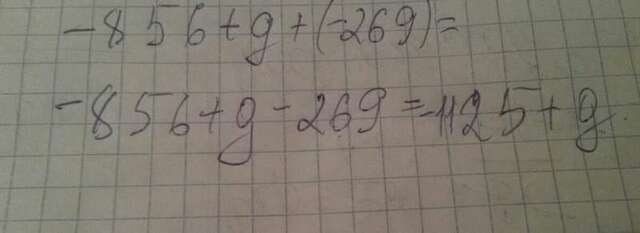 -856+g+(-269)=
-856+g-269=-1125+g